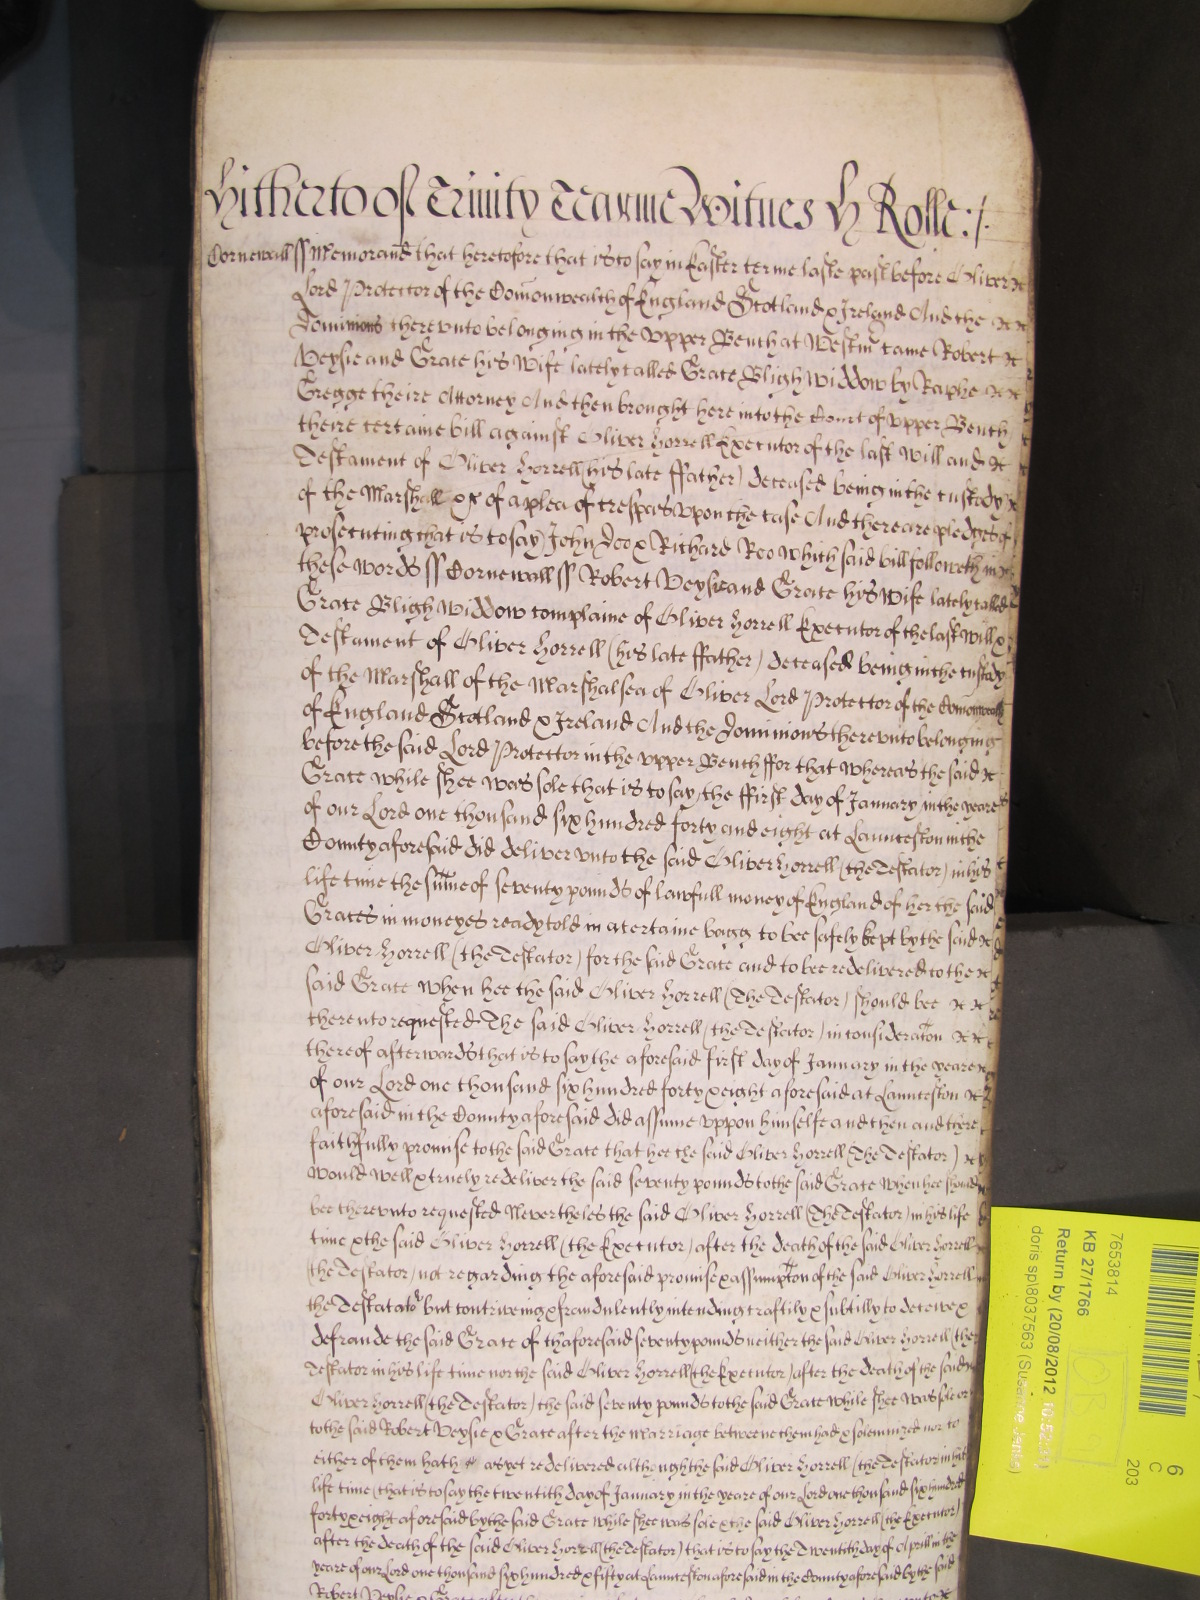 Hitherto of Trinity Tearme Witnes H Rolle:/.
Cornewall ss Memorand that heretofore that is to say in Easter terme laste past before Oliver
Lord Protector of the Comonwealth of England Scotland & Ireland And the
Dominions therevnto belonging in the vpper Bench at Westmr came Robert
Veysie and Grace his Wife lately called Grace Bligh Widdow by Raphe
Gregge theire Attorney And then brought here into the Court of vpper Bench
theire certaine bill against Oliver Horrell Executor of the last Will and
Testament of Oliver Horrell (his late ffather) deceased being in the custody
of the Marshall &c of a plea of trespas vpon the case And there are pledges of
prosecuting that is to say John Doo & Richard Roo which said bill followeth in
these words ss Cornewall ss Robert Veysie and Grace his Wife lately called
Grace Bligh Widdow complaine of Oliver Horrell Executor of the last Will &
Testament of Oliver Horrell (his late ffather) deceased being in the custody
of the Marshall of the Marshalsea of Oliver Lord Protector of the Comonwealth
of England Scotland & Ireland And the Dominions therevnto belonging
before the said Lord Protector in the vpper Bench ffor that whereas the said
Grace while shee was sole that is to say the ffirst day of January in the yeare
of our Lord one thousand six hundred forty and eight at Launceston in the
County aforesaid did deliver vnto the said Oliver Horrell (the Testator) in his
life time the sume of seventy pounds of lawfull money of England of her the said
Graces in moneyes ready told in a certaine bagg to bee safely kept by the said
Oliver Horrell (the Testator) for the said Grace and to bee redelivered to the
said Grace when hee the said Oliver Horrell (The Testator) should bee
therevnto requested The said Oliver Horrell (the Testator) in consideraton
thereof afterwards that is to say the aforesaid first day of January in the yeare
of our Lord one thousand six hundred forty & eight aforesaid at Launceston
aforesaid in the County aforesaid did assume vppon himselfe and then and there
faithfully promise to the said Grace that hee the said Oliver Horrell (The Testator)
would well & truely redeliver the said seventy pounds to the said Grace when hee should
bee therevnto requested Nevertheles the said Oliver Horrell (The Testator) in his life
time & the said Oliver Horrell (the Executor) after the death of the said Oliver Horrell
(the Testator) not regarding the aforesaid promise & assumpton of the said Oliver Horrell
the Testator but contriveing & fraudulently intending craftily & subtilly to deceive &
defraude the said Grace of thaforesaid seventy pounds neither the said Oliver Horrell (the
Testator in his life time nor the said Oliver Horrell (the Executor) after the death of the said
Oliver Horrell (the Testator) the said seventy pounds to the said Grace while shee was sole or
to the said Robert Veysie & Grace after the marriage betweene them had & solemnized nor to
either of them hath as yet redelivered although the said Oliver Horrell (the Testator in his
life time (that is to say the twentith day of January in the yeare of our Lord one thousand six hundred
forty & eight aforesaid by the said Grace while shee was sole & the said Oliver Horrell (the Executor)
after the death of the said Oliver Horrell (the Testator) that is to say the Twentith day of Aprill in the
yeare of our Lord one thousand six hundred & fifty at Launceston aforesaid in the County aforesaid by the said
Robert Veysie & Grace
7653814
KB 27/1766
Return by (20/08/2012
doris sp\8037563
6
C
203